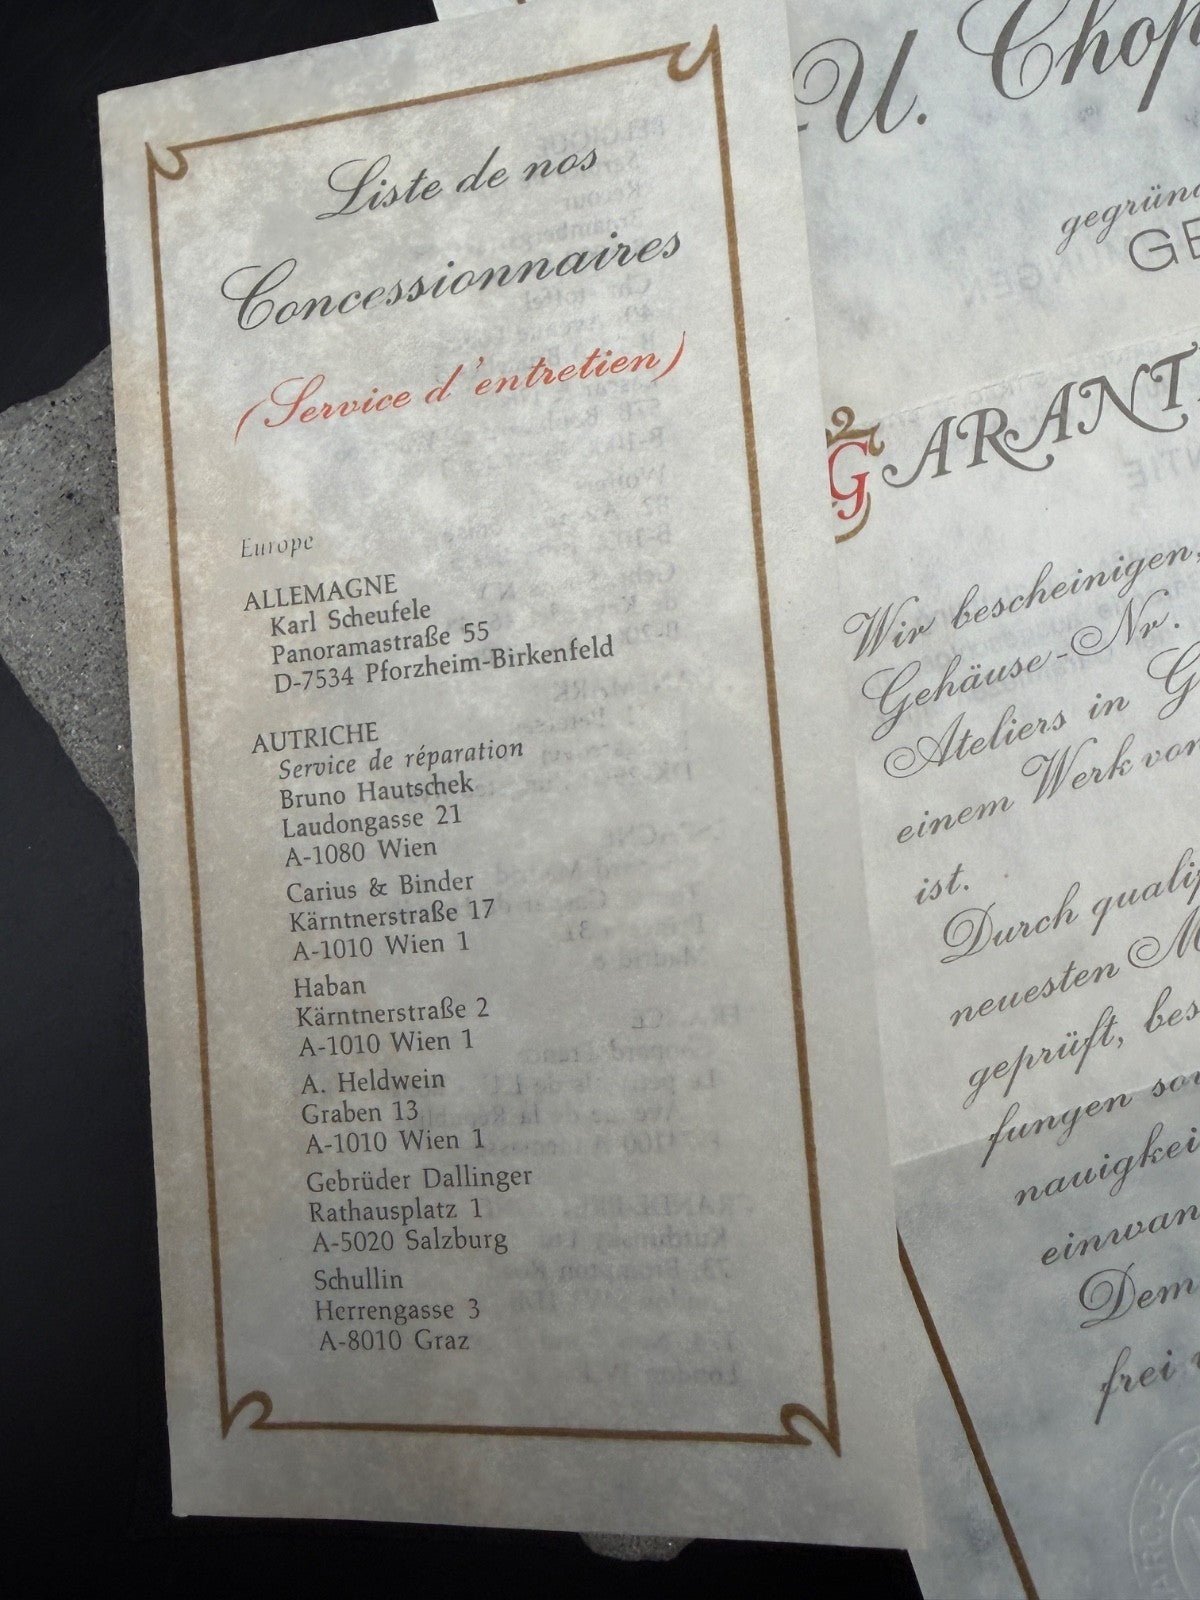 Liste de nos
Concessionnaires
(Service d'entretien)
Europe
ALLEMAGNE
Karl Scheufele
Panoramastraße 55
D-7534 Pforzheim-Birkenfeld
AUTRICHE
Service de réparation
Bruno Hautschek
Laudongasse 21
A-1080 Wien
Carius & Binder
Kärntnerstraße 17
A-1010 Wien 1
Haban
Kärntnerstraße 2
A-1010 Wien 1
A. Heldwein
Graben 13
A-1010 Wien 1
Gebrüder Dallinger
Rathausplatz 1
A-5020 Salzburg
Schullin
Herrengasse 3
A-8010 Graz
U. Chop
gegründ
GE
GARANT
Wir bescheinigen,
Gehäuse-Nr.
Ateliers in G
einem Werk von
ist.
Durch qualif
neuesten M
geprüft, bes
fungen sow
nauigkei
einwan
Dem
frei